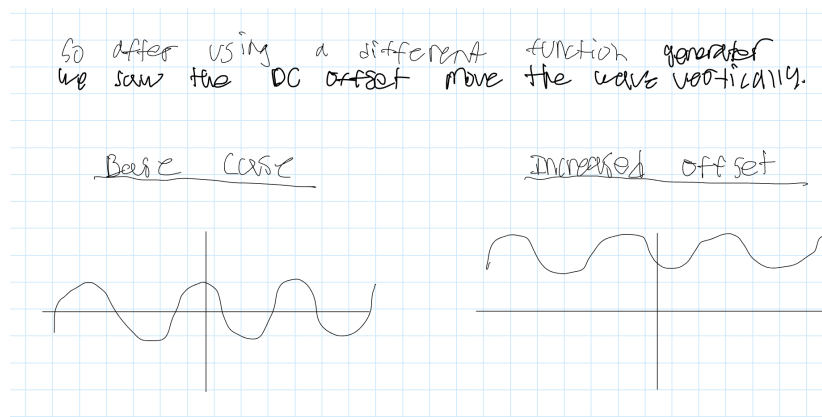 So after using a different function generater
we saw the DC offset move the wave vertically.
Base Case
Increased offset